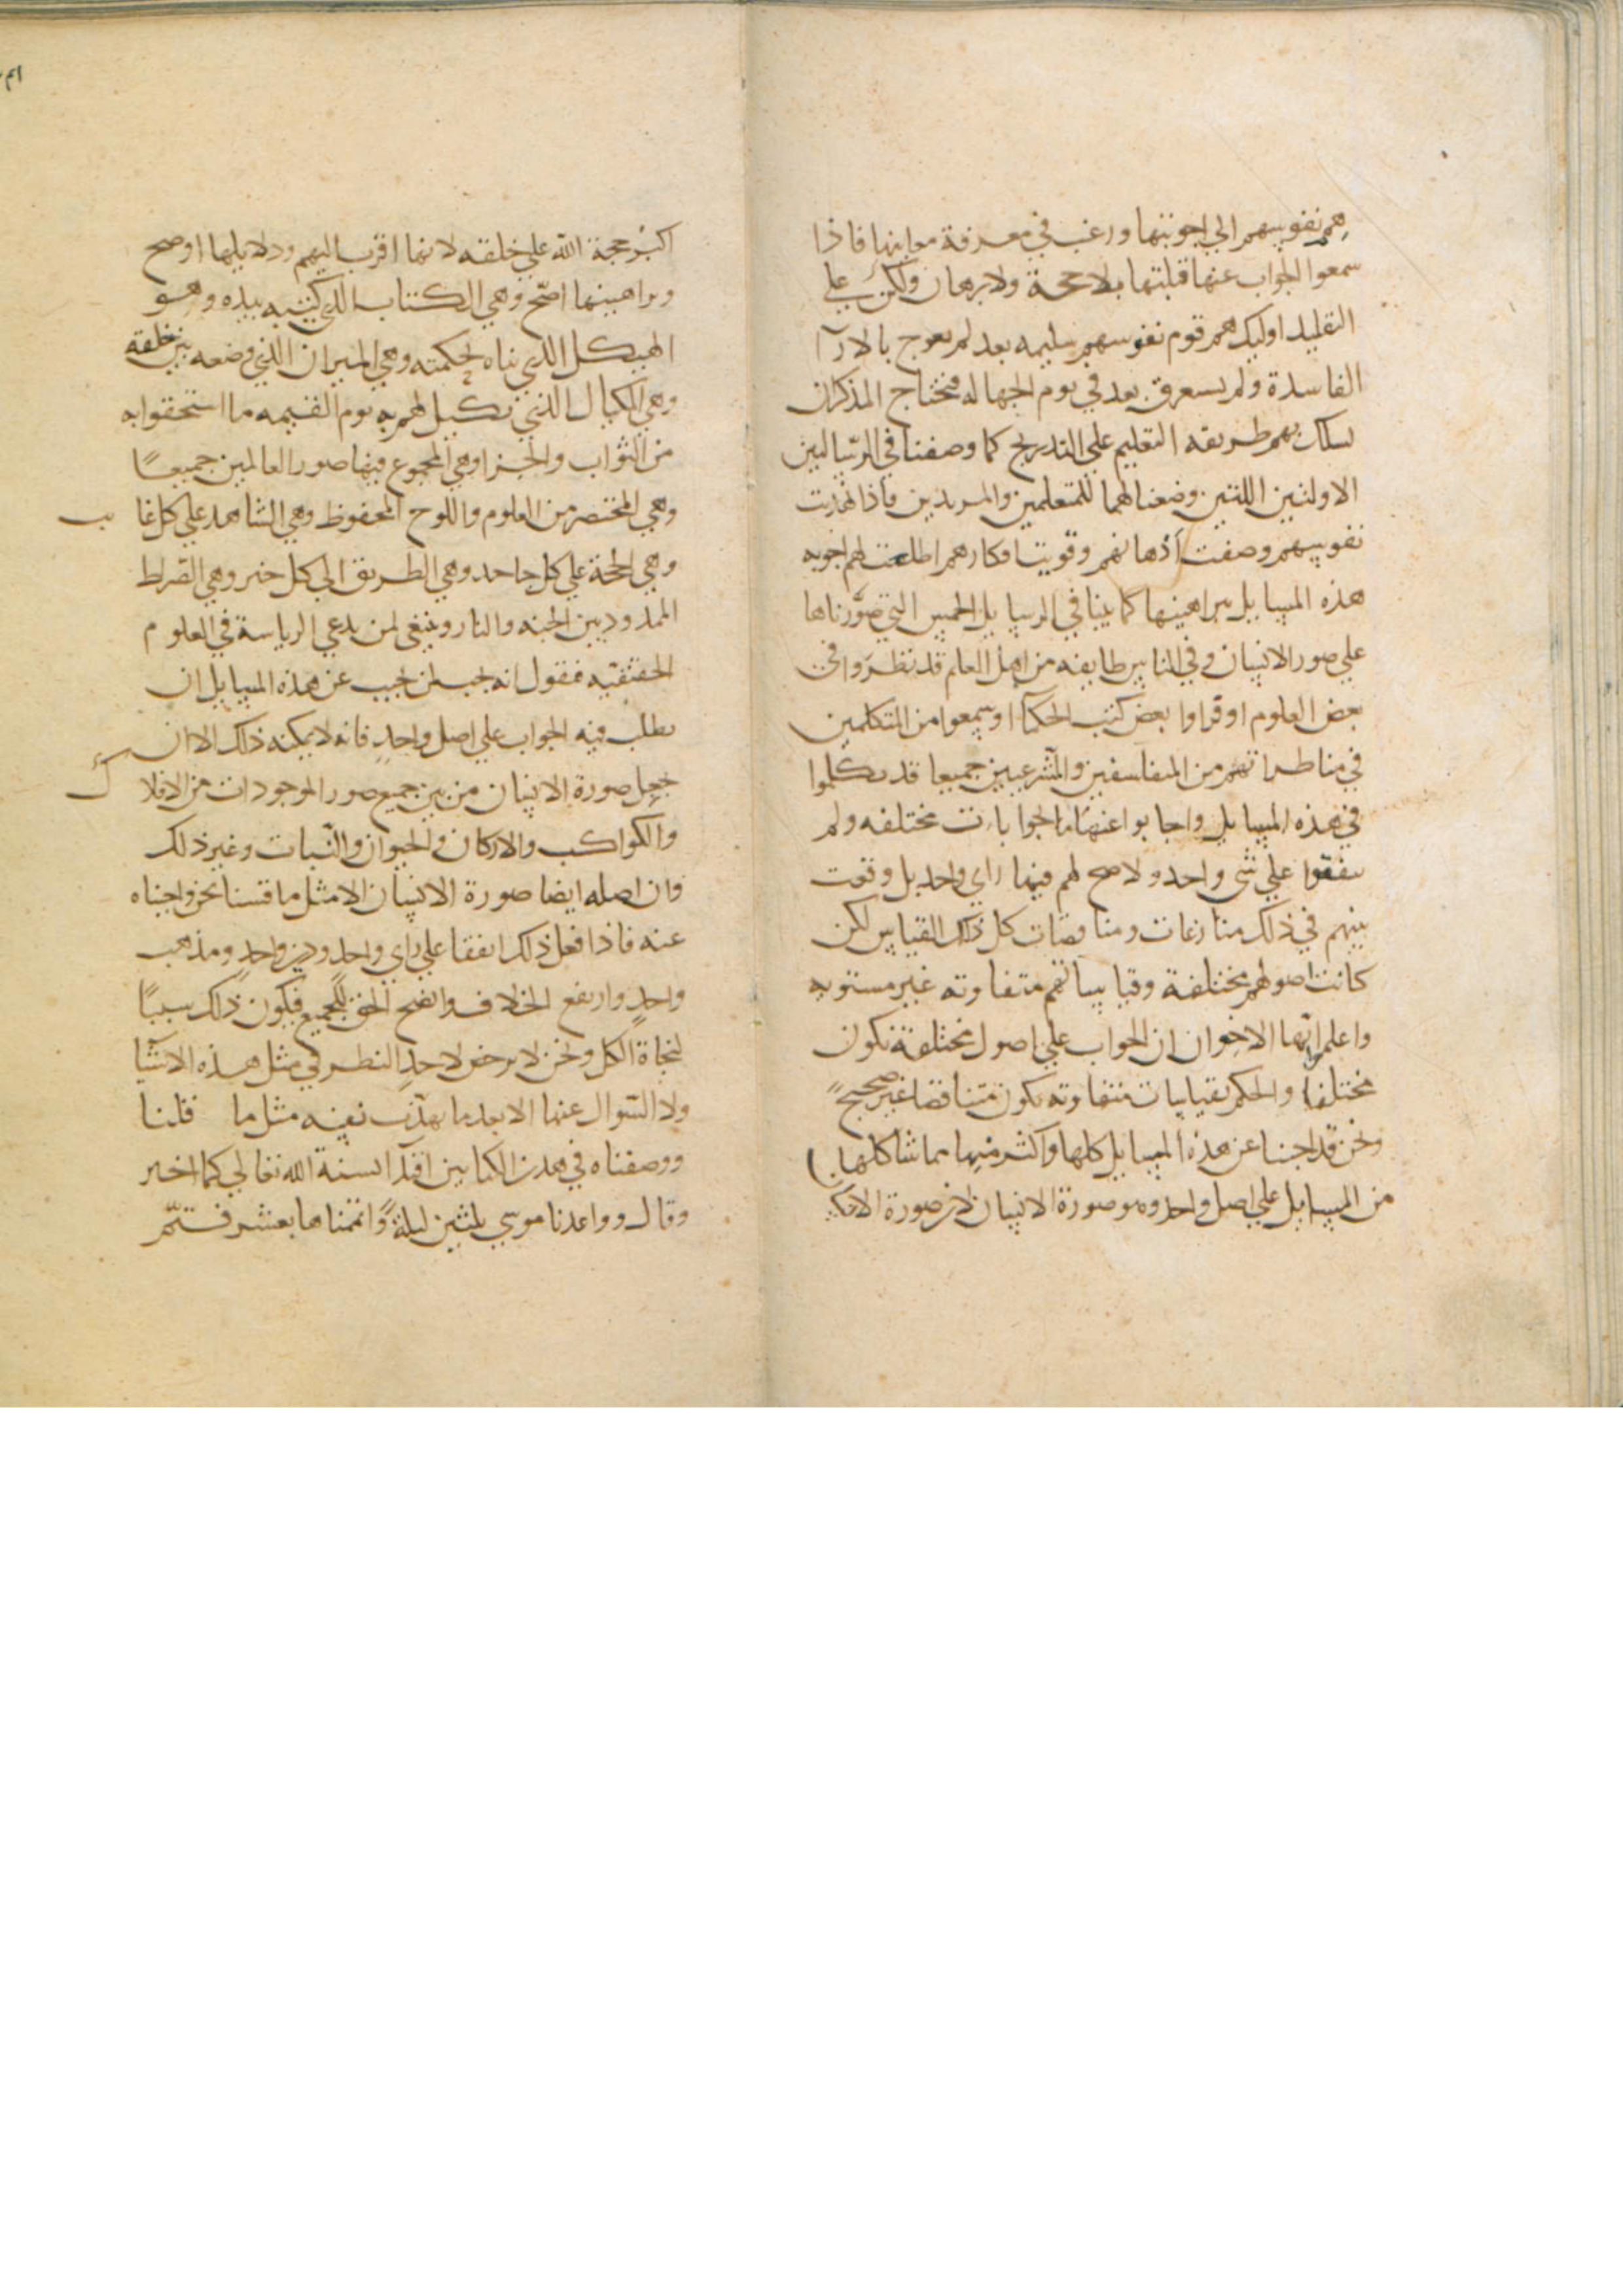 همم نفوسهم الي اجوبتها ورغب في معرفة معانيها فاذا
سمعوا الجواب عنها قبلتها بلا حجة ولا برهان ولكن علي
التقليد اوليك هم قوم نفوسهم سليمه بعد لم يعوج بالارآ
الفاسدة ولم يستغرق بعد في نوم الجهاله فتحتاج المذكران
يسلك بهم طريقه التعليم علي التدريج كما وصفنا في الرسالتين
الاولتين اللتين وضعناهما للمتعلمين والمريدين فاذا تهذبت
نفوسهم وصفت اذهانهم وقويت افكارهم اطلعت لهم اجوبه
هذه المسايل ببراهينها كما بينا في الرسايل الخمس التي صورناها
علي صور الانسان وفي الناس طايفه من اهل العلم قد نظروا في
بعض العلوم او قراوا بعض كتب الحكمآ او سمعوا من المتكلمين
في مناظراتهم من المتفلسفين والشرعيين جميعا قد تكلموا
في هذه المسايل واجابوا عنها بالجوابات مختلفه ولم
يتفقوا علي شي واحد ولا صح لهم فيها راي واحد بل وقعت
بينهم في ذلك منازعات ومناقضات كل ذلك القياس لكن
كانت اصولهم مختلفة وقياساتهم متفاوته غير مستويه
واعلم ايها الاخوان ان الجواب علي اصول مختلفة تكون
مختلفا والحكم بقياسات متفاوته يكون متناقضا غير صحيح
ونحن قد اجبنا عن هذه المسايل كلها واكثر منها مما شاكلها
من المسايل علي اصل واحد وهو صورة الانسان لان صورة الانسان
اكبر حجة الله علي خلقه لانها اقرب اليهم ودلايلها اوضح
وبراهينها اصح وهي الكتاب الذي كتبه بيده وهو
الهيكل الذي بناه لحكمته وهي الميزان الذي وضعه بين خلقه
وهي المكيال الذي يكيل لهم به يوم القيمه ما استحقوا به
من الثواب والجزا وهي المجموع فيها صور العالمين جميعا
وهي المختصر من العلوم واللوح المحفوظ وهي الشاهد علي كل غايب
وهي الحجة علي كل جاحد وهي الطريق الي كل خير وهي الصراط
الممدود بين الجنه والنار وينبغي لمن يدعي الرياسة في العلوم
الحقيقيه فيقول انه يحسن يجيب عن هذه المسايل ان
يطلب فيه الجواب علي اصل واحد فانه لا يمكنه ذلك الا ان
يجعل صورة الانسان من بين جميع صور الموجودات من الافلاك
والكواكب والاركان والحيوان والنبات وغير ذلك
وان اصله ايضا صورة الانسان الا مثل ما قسنا نحن واجبناه
عنه فاذا فعل ذلك اتفقا علي راي واحد ودين واحد ومذهب
واحد وارتفع الخلاف واتضح الحق للجميع فيكون ذلك سببا
لنجاة الكل ونحن لا نرخص لاحد النظر في مثل هذه الاشيا
ولا السوال عنها الا بعد ما يهذب نفسه مثل ما قلنا
ووصفناه في هذين الكتابين اقتدآ لسنة الله تعالي كما اخبر
وقال وواعدنا موسي ثلثين ليلة واتممناها بعشر فتم